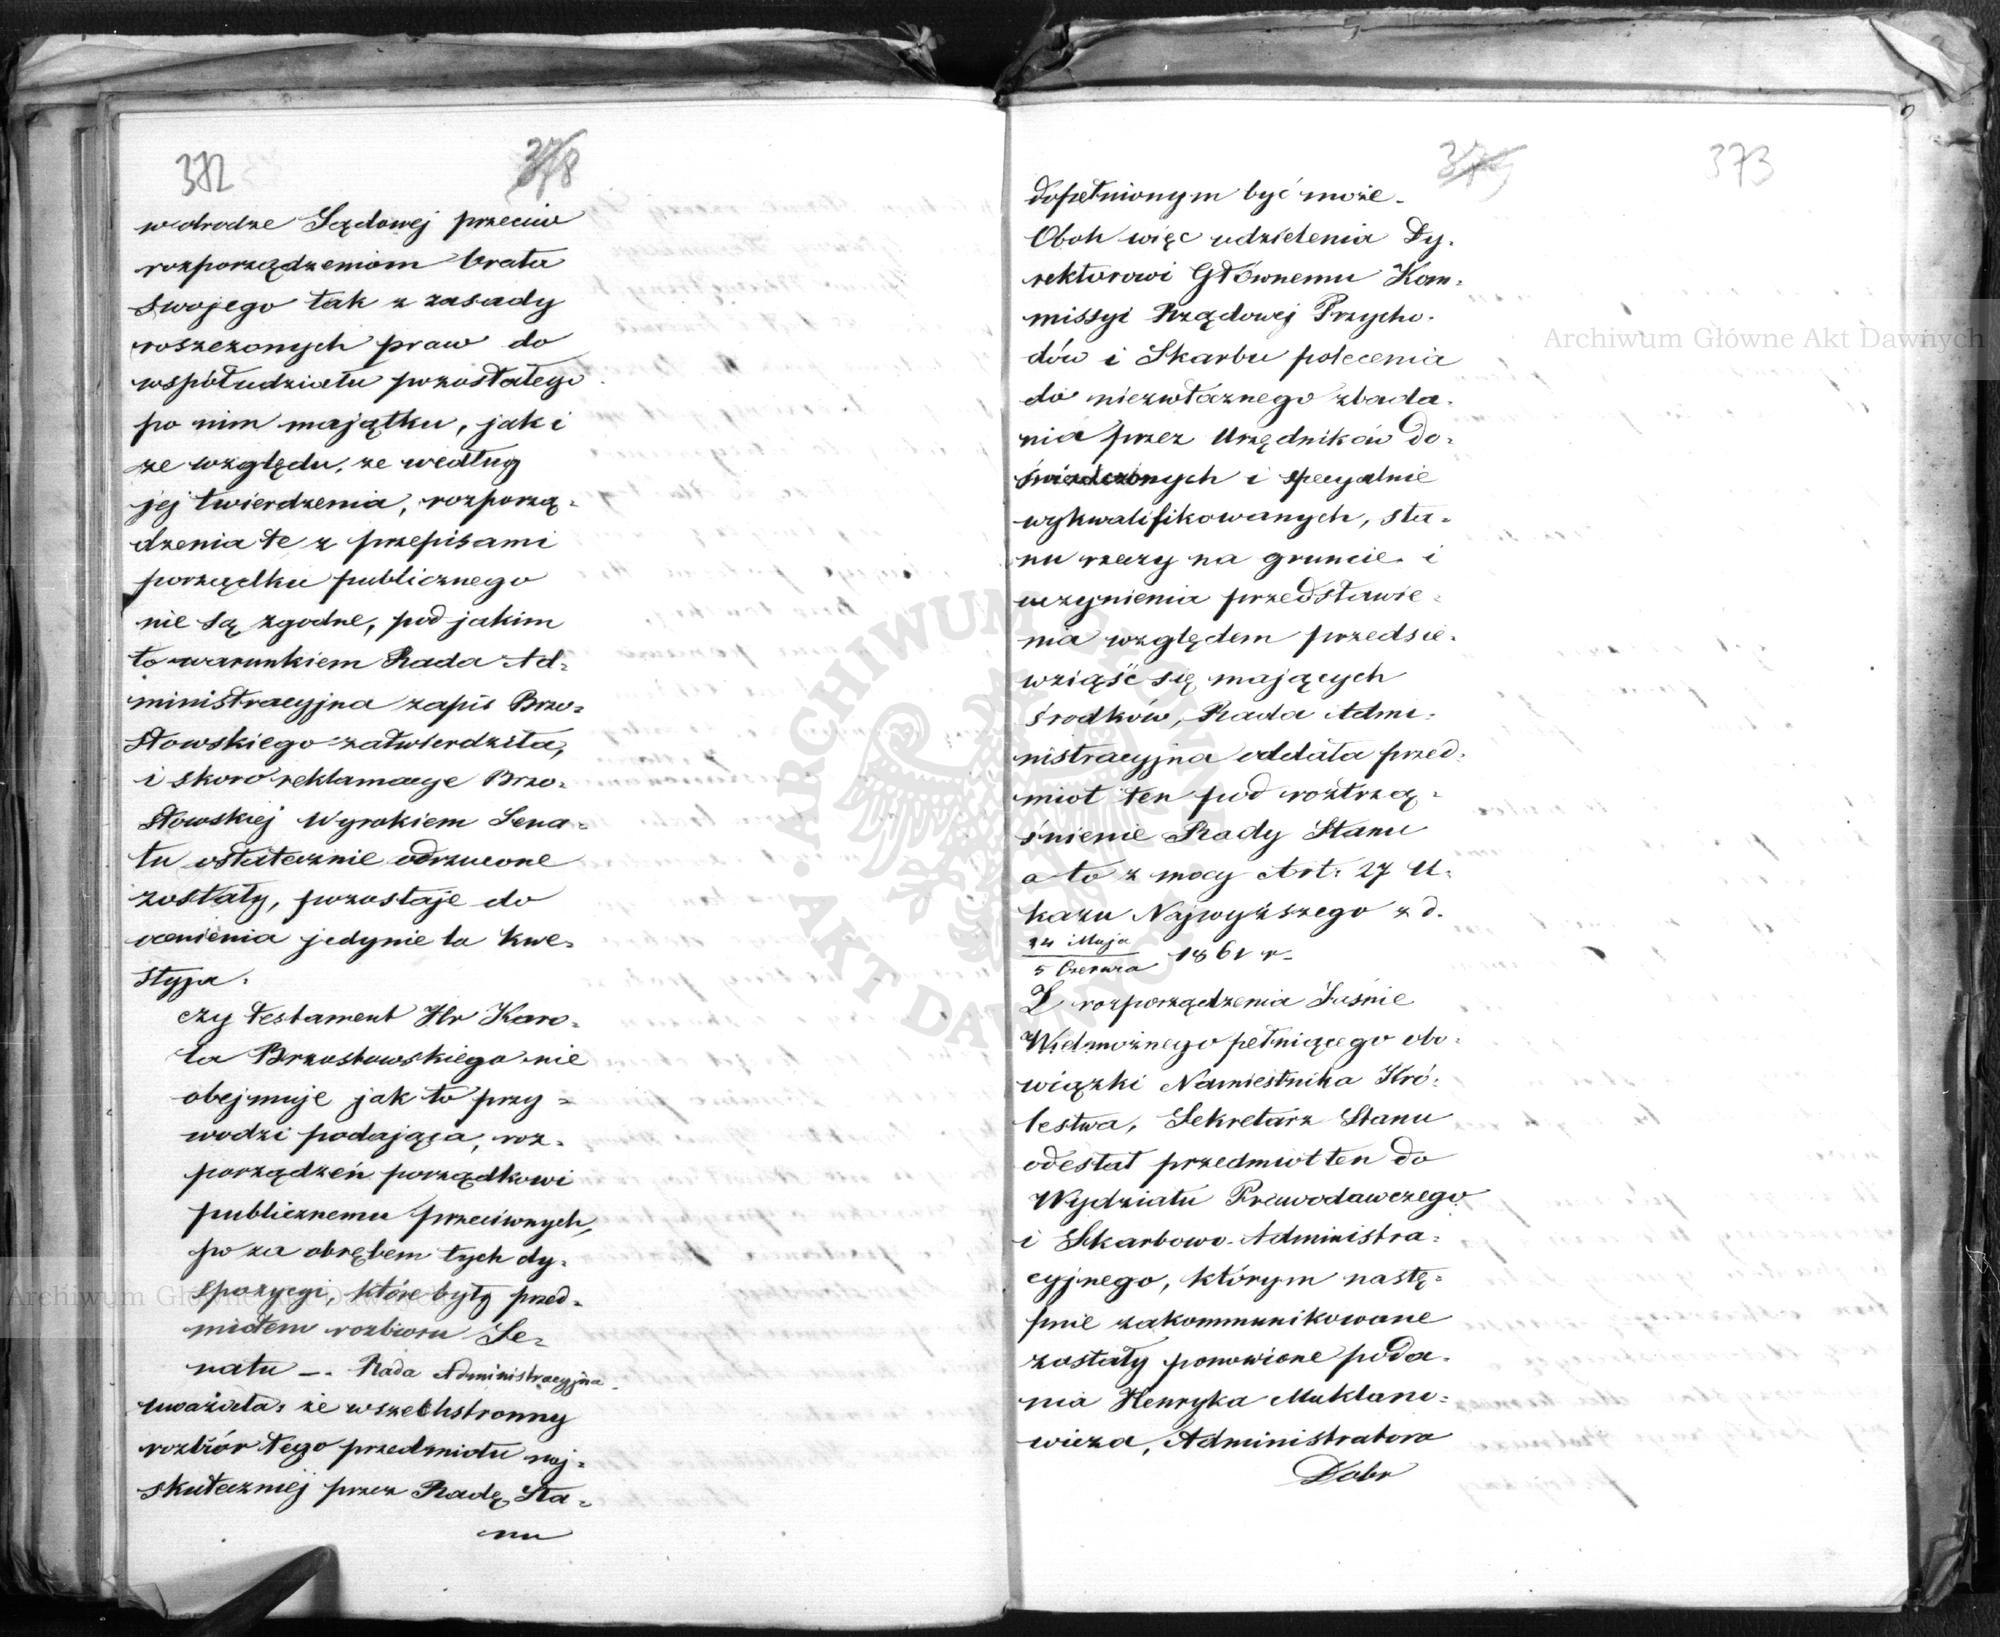 372
378
w drodze Sądowej przeciw
rozporządzeniom brata
swojego tak z zasady
roszczonych praw do
współudziału pozostałego
po nim majątku, jak i
ze względu, że według
jej twierdzenia, rozporzą=
dzenia te z przepisami
porządku publicznego
nie są zgodne, pod jakim
to warunkiem Rada Ad=
ministracyjna zapis Brzo=
stowskiego zatwierdziła,
i skoro reklamacye Brzo=
stowskiej Wyrokiem Sena=
tu ostatecznie odrzucone
zostały, pozostaje do
ocenienia jedynie ta kwe=
stya:
czy testament Hr Karo=
la Brzostowskiego nie
obejmuje jak to przy=
wodzi podająca, roz=
porządzeń porządkowi
publicznemu przeciwnych,
po za obrębem tych dy=
spozycyi, które były przed=
miotem rozbioru Se=
natu —. Rada Administracyjna
uważała: że wszechstronny
rozbiór tego przedmiotu naj=
skuteczniej przez Radę Sta=
nu
373
dopełnionym być może.
Obok więc udzielenia Dy=
rektorowi Głównemu Kom=
missyi Rządowej Przycho=
dów i Skarbu polecenia
do niezwłocznego zbada=
nia przez Urzędników do=
świadczonych i specyalnie
wykwalifikowanych, sta=
nu rzeczy na gruncie i
uczynienia przedstawie=
nia względem przedsie=
wziąść się mających
środków, Rada Admi=
nistracyjna oddała przed=
miot ten pod roztrzą=
śnienie Rady Stanu
a to z mocy Art: 27 U=
kazu Najwyższego z d.
24 Maja
5 Czerwca 1861 r.
Z rozporządzenia Jaśnie
Wielmożnego pełniącego obo=
wiązki Namiestnika Kró=
lestwa, Sekretarz Stanu
odesłał przedmiot ten do
Wydziału Prawodawczego
i Skarbowo-Administra=
cyjnego, którym nastę=
pnie zakommunikowane
zostały ponowione poda=
nia Henryka Muklano=
wicza, Administratora
Dóbr
Archiwum Główne Akt Dawnych
Archiwum Główne Akt Dawnych
ARCHIWUM GŁÓWNE AKT DAWNYCH